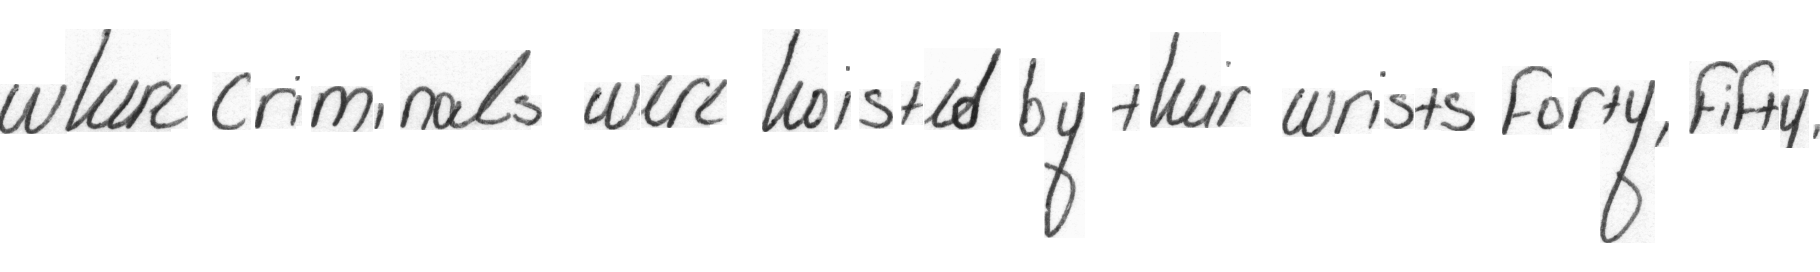 where criminals were hoisted by their wrists forty, fifty,